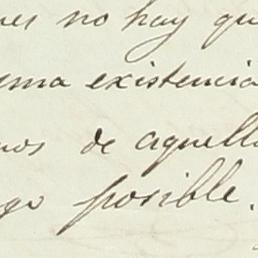 ues no hay qu
ema existencia
nos de aquell
go posible.